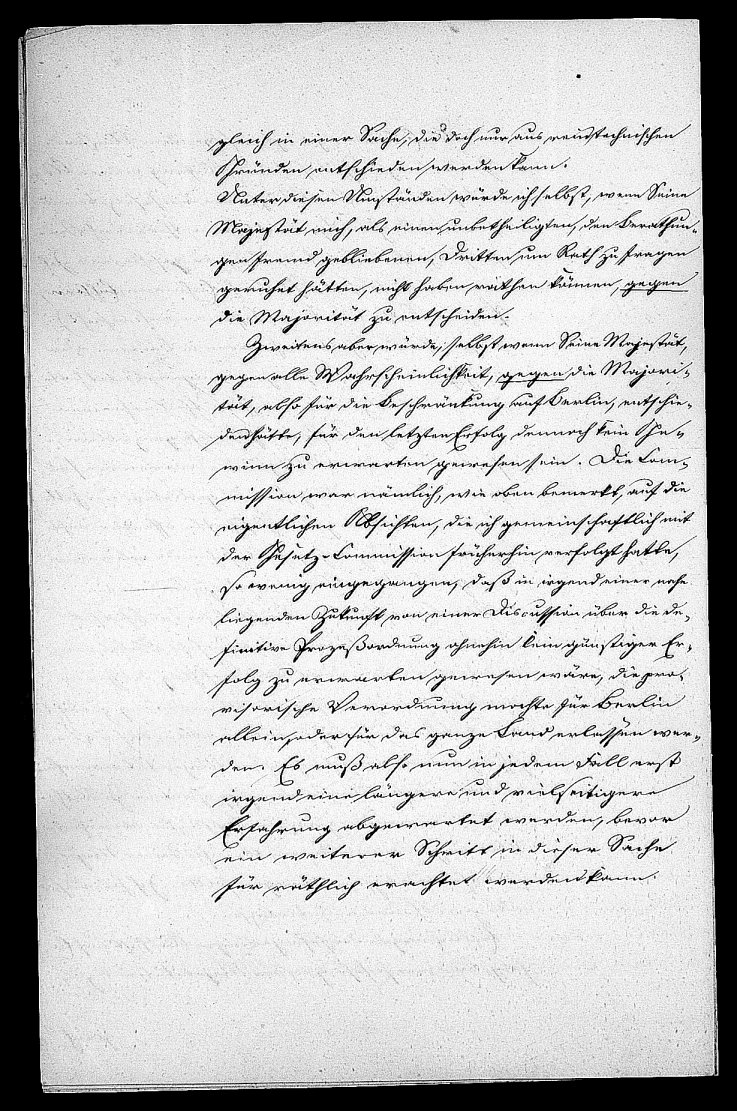 gleich in einer Sache, die doch nur aus rein technischen
Gründen entschieden werden kann.
Unter diesen Umständen würde ich selbst, wenn Seine
Majestät mich, als einen unbetheiligten, den Berathun-
gen fremd gebliebenen, Dritten um Rath zu fragen
geruhet hätten, nicht haben rathen können, gegen
die Majorität zu entscheiden.
Zweitens aber würde, selbst wenn Seine Majestät,
gegen alle Wahrscheinlichkeit, gegen die Majori-
tät, also für die Beschränkung auf Berlin, entschie-
den hätte, für den letzten Erfolg dennoch kein Ge-
winn zu erwarten gewesen sein. Die Com-
mission war nämlich, wie oben bemerkt, auf die
eigentlichen Absichten, die ich gemeinschaftlich mit
der Gesetz-Commission früherhin verfolgt hatte,
so wenig eingegangen, daß in irgend einer nahe
liegenden Zukunft von einer Discussion über die de-
finitive Prozeßordnung ohnehin kein günstiger Er-
folg zu erwarten gewesen wäre, die pro-
visorische Verordnung mochte für Berlin
allein, oder für das ganze Land erlassen wer-
den. Es muß also nun in jedem Fall erst
irgend eine längere und vielseitigere
Erfahrung abgewartet werden, bevor
ein weiterer Schritt in dieser Sache
für räthlich erachtet werden kann.